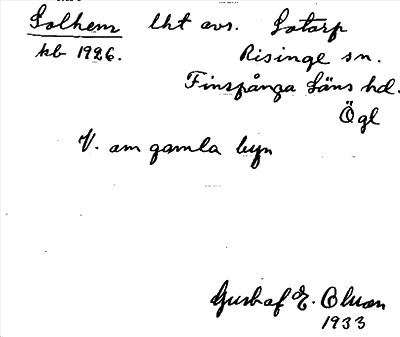 Solhem lht avs. Sotorp
kb 1926. Risinge sn.
Finspånga Läns hd.
Ögl
V. om gamla byn
Gustaf E. Olson
1933